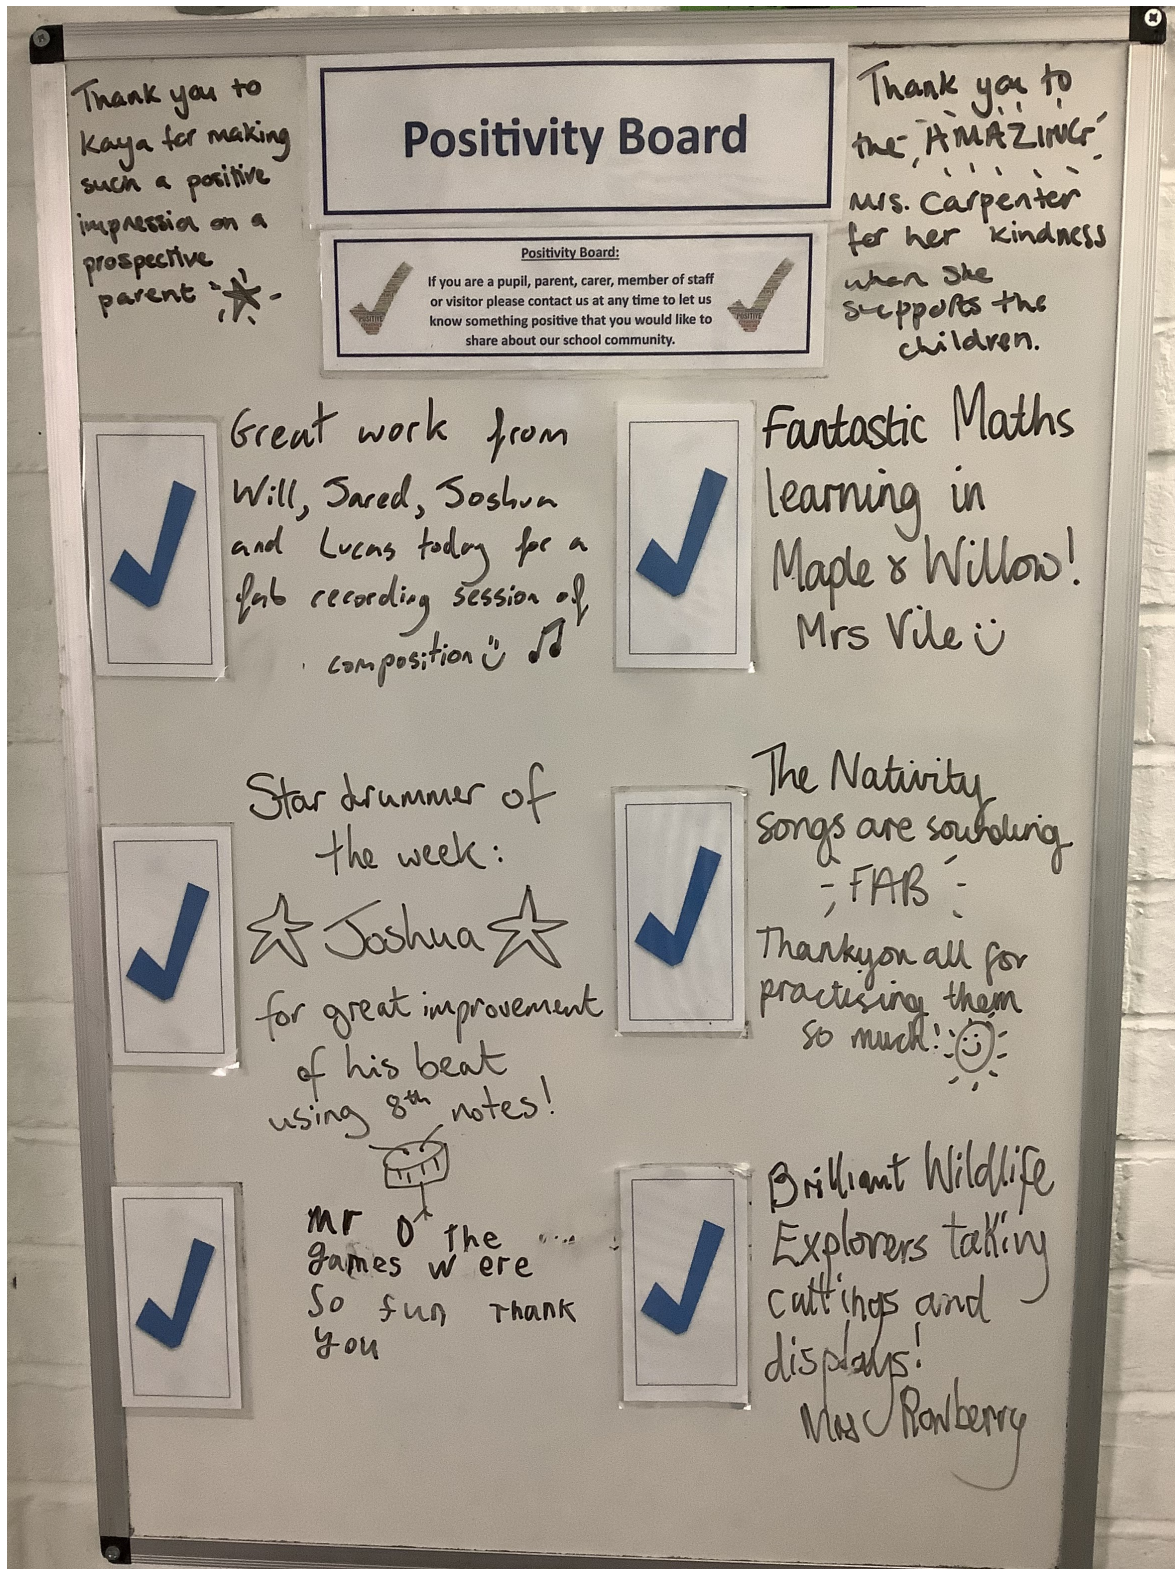 Thank you to
Kaya for making
such a positive
impression on a
prospective
parent
Positivity Board
Positivity Board:
If you are a pupil, parent, carer, member of staff
or visitor please contact us at any time to let us
know something positive that you would like to
share about our school community.
POSITIVE
POSITIVE
Thank you to
the AMAZING
Mrs. Carpenter
for her kindness
when she
supports the
children.
Great work from
Will, Jared, Joshua
and Lucas today for a
fab recording session of
composition
Fantastic Maths
learning in
Maple & Willow!
Mrs Vile
Star drummer of
the week:
Joshua
for great improvement
of his beat
using 8th notes!
The Nativity
songs are sounding
FAB
Thankyou all for
practising them
so much!
Mr O the
games were
so fun Thank
you
Brilliant Wildlife
Explorers taking
cuttings and
displays!
Mrs Rowberry